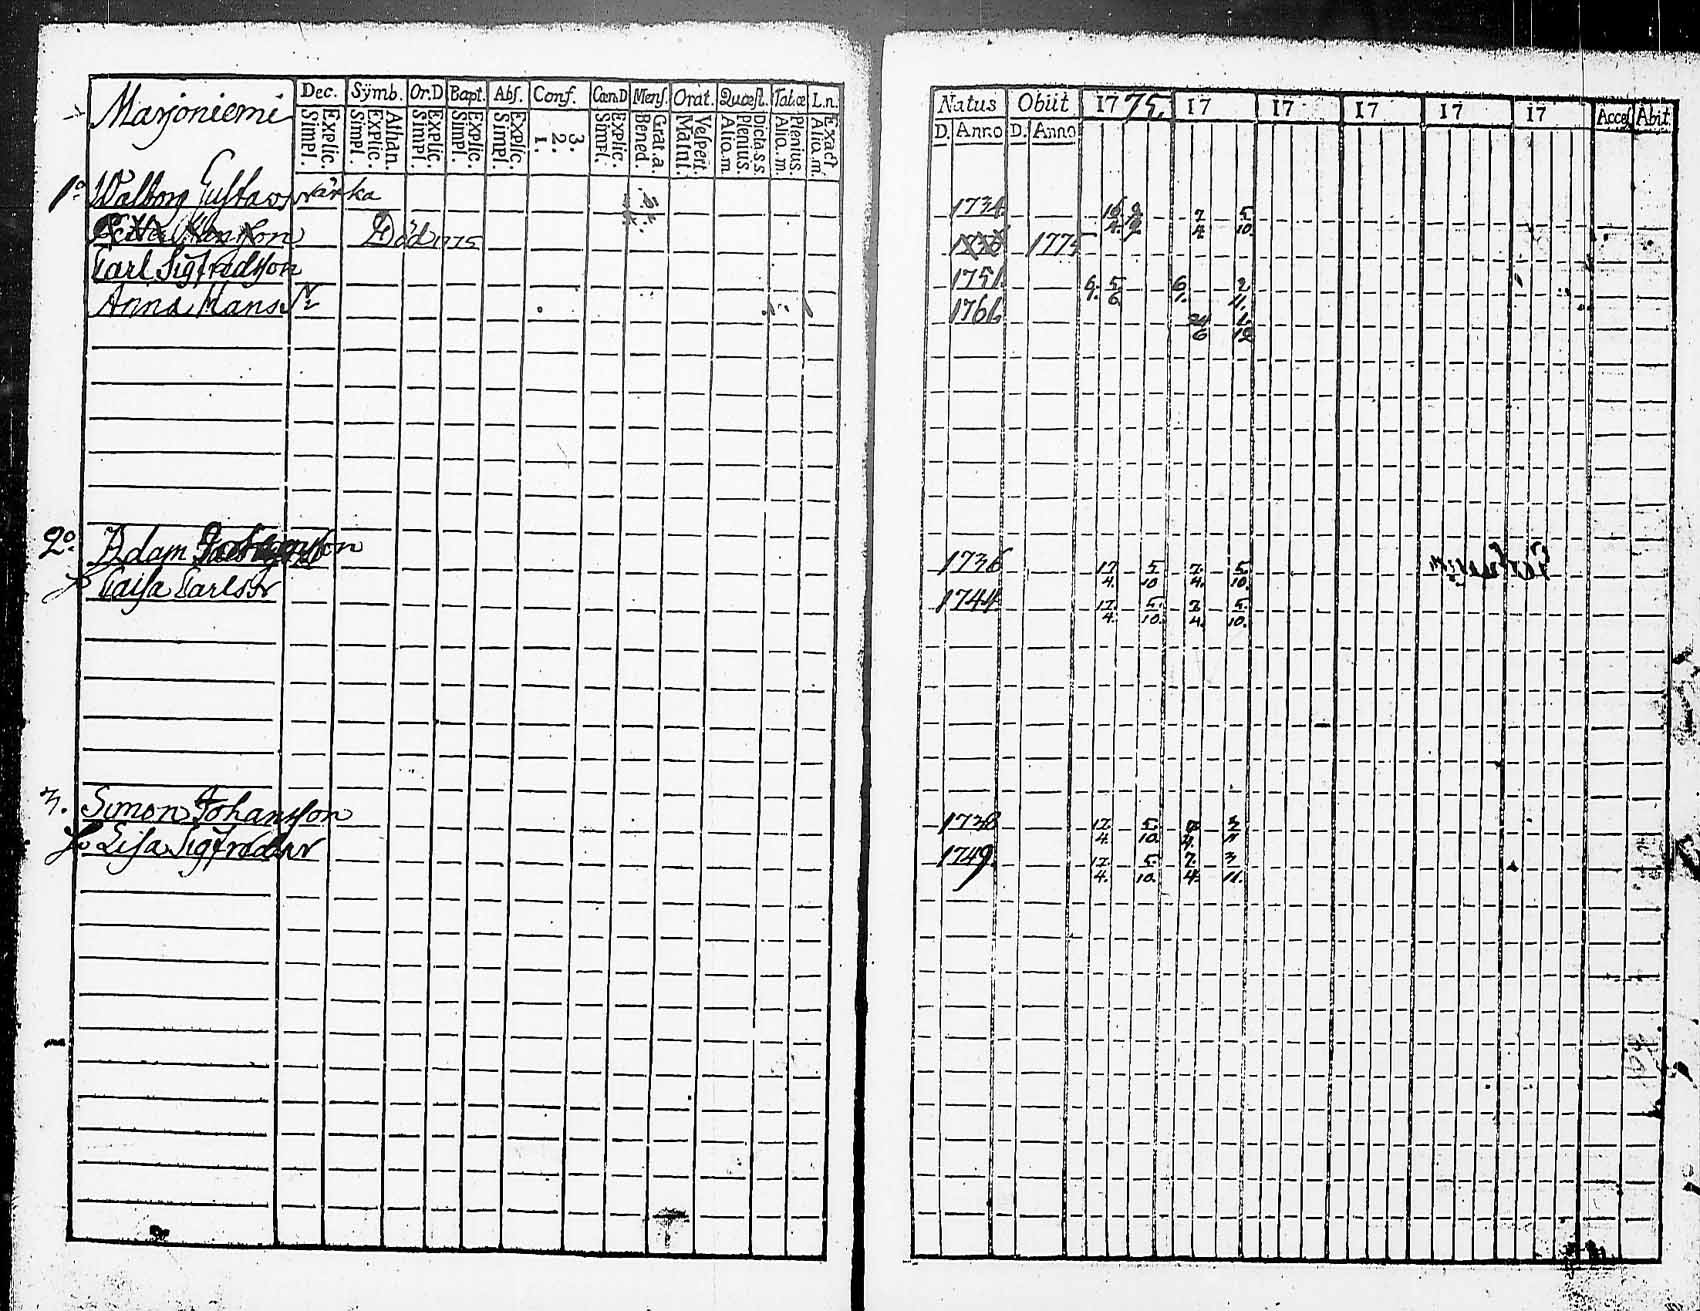 Marjoniemi
Dec. Sÿmb. Or.D Bapt. Abs. Conf. Cœn.D Mens. Orat. Quæst. Tab.æ L.n.
Explic. Simpl. Athan. Explic. Simpl. Explic. Simpl. Explic. Simpl. Explic. Simpl. 3. 2. 1. Explic. Simpl. Grat.a. Bened. Vespert. Matut. Dicta s.s. Plenius. Alio.m Plenius. Alio.m. Exact. Alio.m.
1° Walborg Gustavs änka
Död 1775
Carl Sigfredsson
Anna Hans
2° Adam
Caisa Carls
3. Simon Johansson
h. Lisa Sigfreds
Natus Obiit 1775 17 17 17 17 17 Acces Abit
D. Anno D. Anno
1734 16/4 7/4 5/10
1775
1751 5/6
1766 24/6
1736 17/4 5/10 7/4 5/10
1744 17/4 5/10 7/4 5/10
1738 17/4 5/10 7/4 3/11
1749 17/4 5/10 7/4 3/11